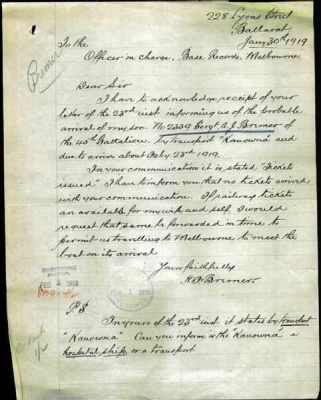 728 Lyons Street
Ballarat
Jany 30th 1919
To the
Officer in Charge, Base Records, Melbourne.
Dear Sir
I have to acknowledge receipt of your
letter of the 23rd inst informing us of the probable
arrival of my son No 2339 Sergt A. J. Brimer of
the 43th Battalion, by transport "Kanowna" and
due to arrive about Feby 23rd 1919.
In your communication it is stated "Tickets
issued" I have to inform you that no tickets arrived
with your communication. If railway tickets
are available for my wife and self, I would
request that same be forwarded in time to
permit us travelling to Melbourne to meet the
boat on its arrival.
Yours faithfully
Brimer.
FEB 3 1919
PS
In yours of the 23rd inst. it states by transport
"Kanowna" Can you inform is the "Kanowna" a
hospital ship, or a transport